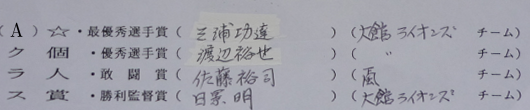 (A)☆・最優秀選手賞(三浦功達)(大館ライオンズ チーム)
ク 個・優秀選手賞(渡辺裕也)(〃 チーム)
ラ 人・敢闘賞(佐藤裕司)(風 チーム)
ス 賞・勝利監督賞(日景明)(大館ライオンズ チーム)